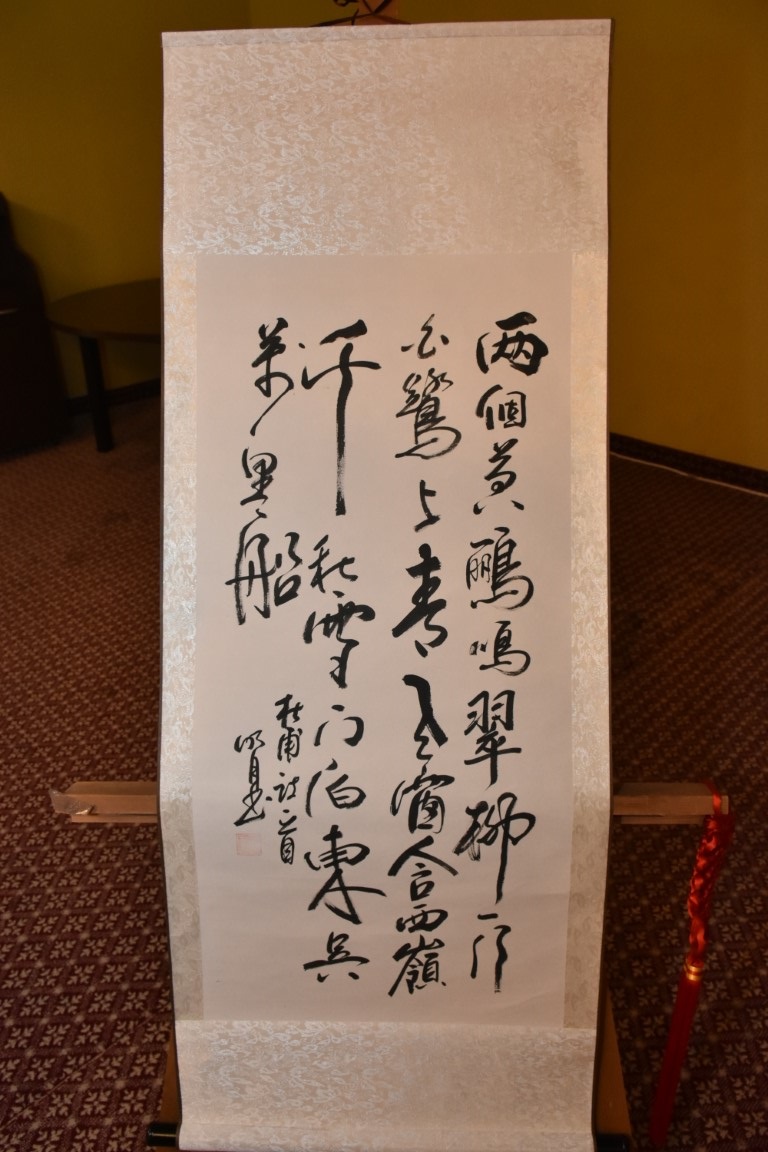 两個黄鸝鳴翠柳一行
白鷺上青天窗含西嶺
千秋雪门泊東吴
萬里船
杜甫诗一首